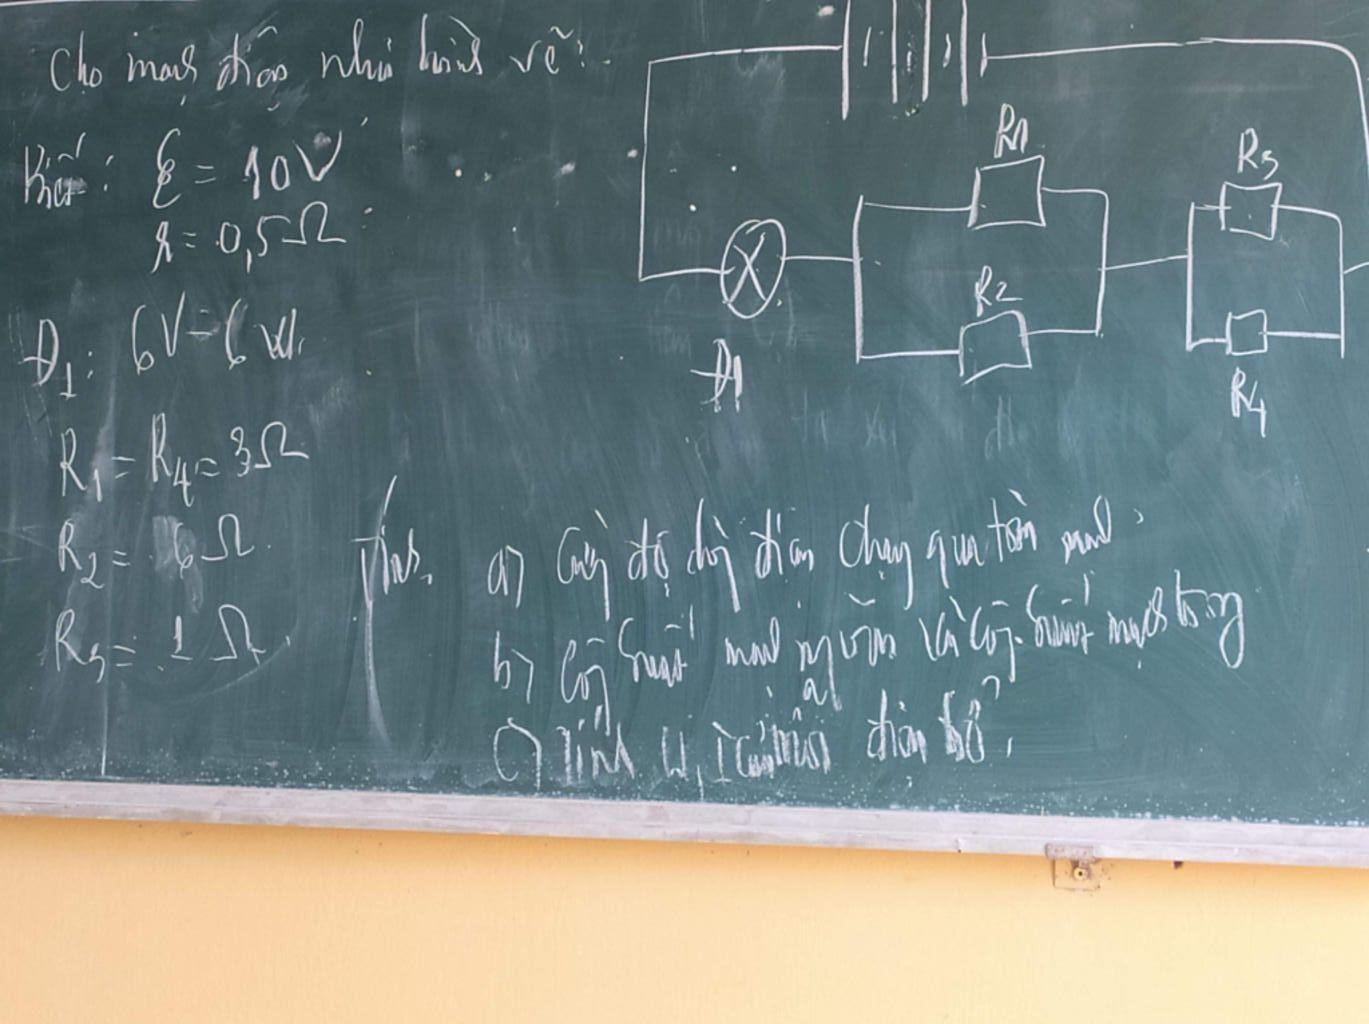 Cho mạch điện như hình vẽ:
Biết: ℰ = 10V
r = 0,5Ω
Đ1: 6V-6W.
R1 = R4 = 3Ω
R2 = 6Ω
R3 = 1Ω
R1
R2
R3
R4
Đ1
Tính. a) Cường độ dòng điện chạy qua toàn mạch.
b) Công suất mạch ngoài và công suất mạch trong
c) Tính U, I của mỗi điện trở?